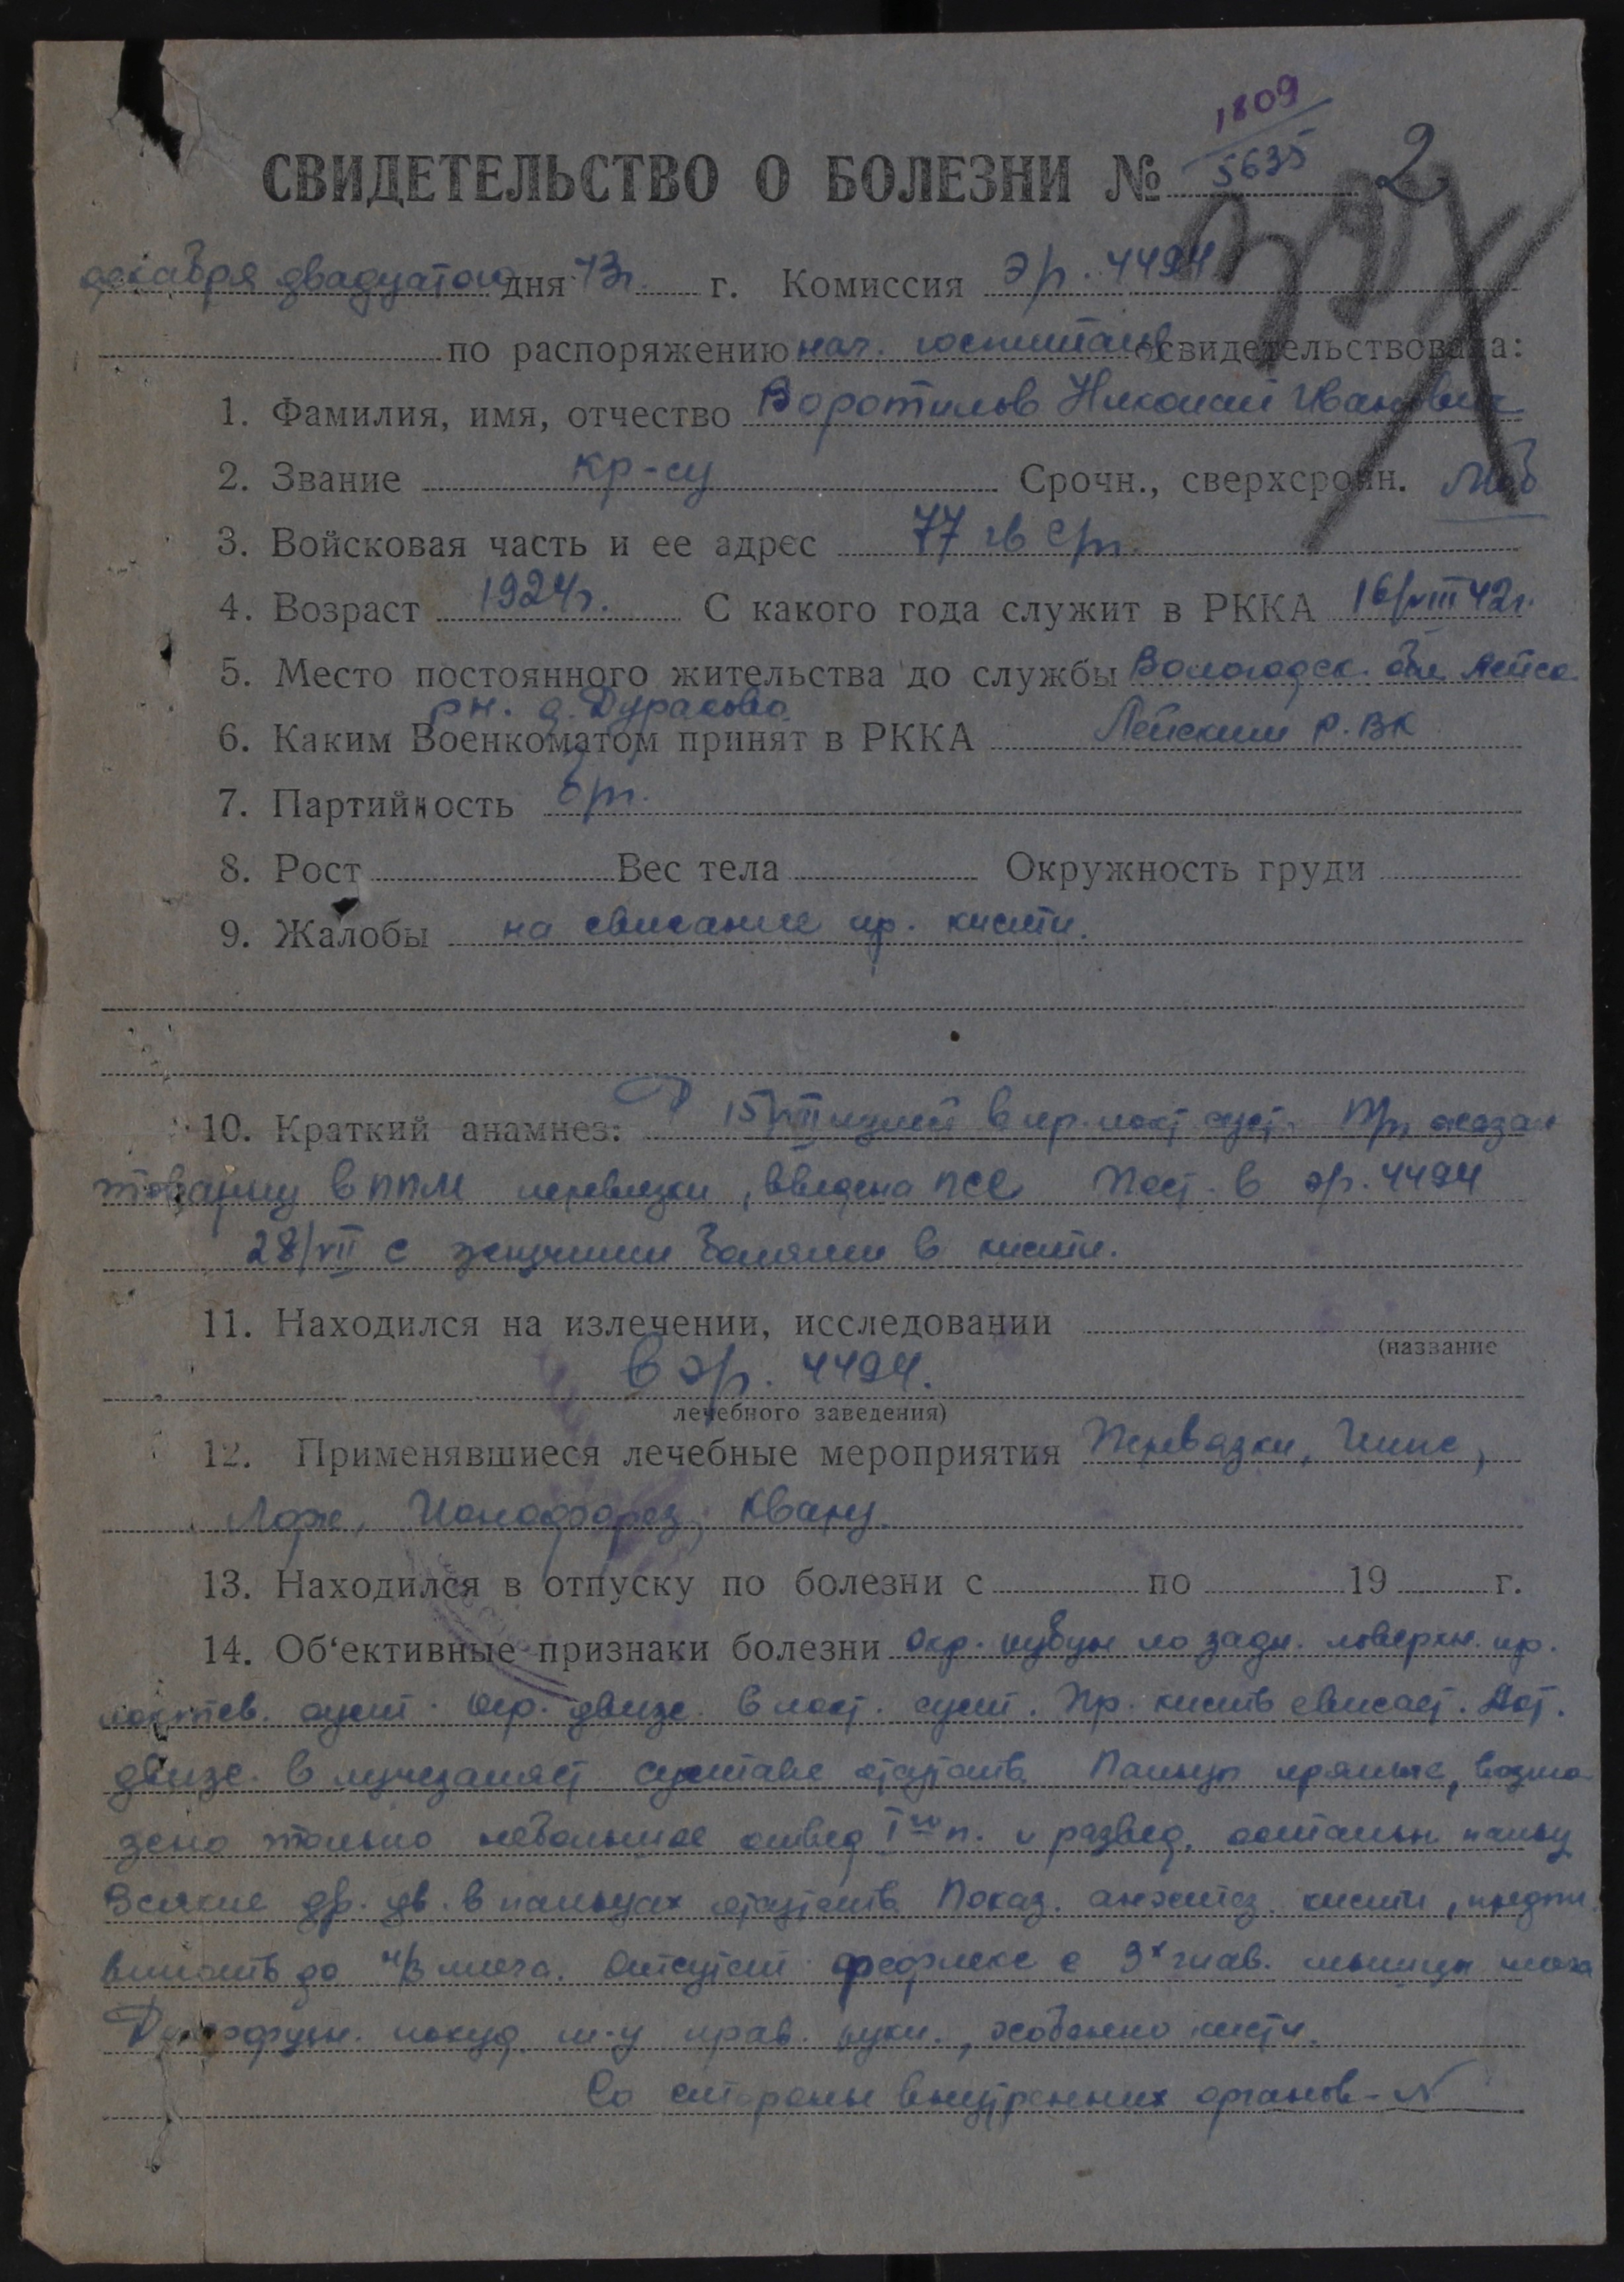 1809
5635 2
СВИДЕТЕЛЬСТВО О БОЛЕЗНИ №
декабря двадцатого дня 43г. г. Комиссия эг. 4494
по распоряжению нач. госпиталя освидетельствовала:
1. Фамилия, имя, отчество Воротилов Николай Иванович
2. Звание кр-ец Срочн., сверхсрочн. моб
3. Войсковая часть и ее адрес 77 гв сп.
4. Возраст 1924г. С какого года служит в РККА 16/VIII 42г.
5. Место постоянного жительства до службы Вологодск. обл
рн. д. Дураково
6. Каким Военкоматом принят в РККА Р.ВК
7. Партийность б/п.
8. Рост Вес тела Окружность груди
9. Жалобы на свисание пр. кисти.
10. Краткий анамнез: 15/VII в пр. локт суст.
в ППМ перевязки, введена ПСС Пост. в эг. 4494
28/VII с жгучими болями в кисти.
11. Находился на излечении, исследовании
(название
в эг. 4494.
лечебного заведения)
12. Применявшиеся лечебные мероприятия Перевязки, Гипс,
Ионофорез, Кварц.
13. Находился в отпуску по болезни с по 19 г.
14. Об‘ективные признаки болезни Окр. рубцы по задн. поверхн. пр.
локтев. суст. Огр. движ. в локт. суст. Пр. кисть свисает. Акт.
движ. в лучезапяст суставе отсутств. Пальцы прямые, возмо
жно только небольшое отвед I го п. и развед. остальн пальц
Всякие др. дв. в пальцах отсутств. кисти, предпл.
вплоть до н/3 плеча. Отсутст рефлекс с 3х глав. мышцы плеча
прав. руки, особенно кисти.
Со стороны внутренних органов - N